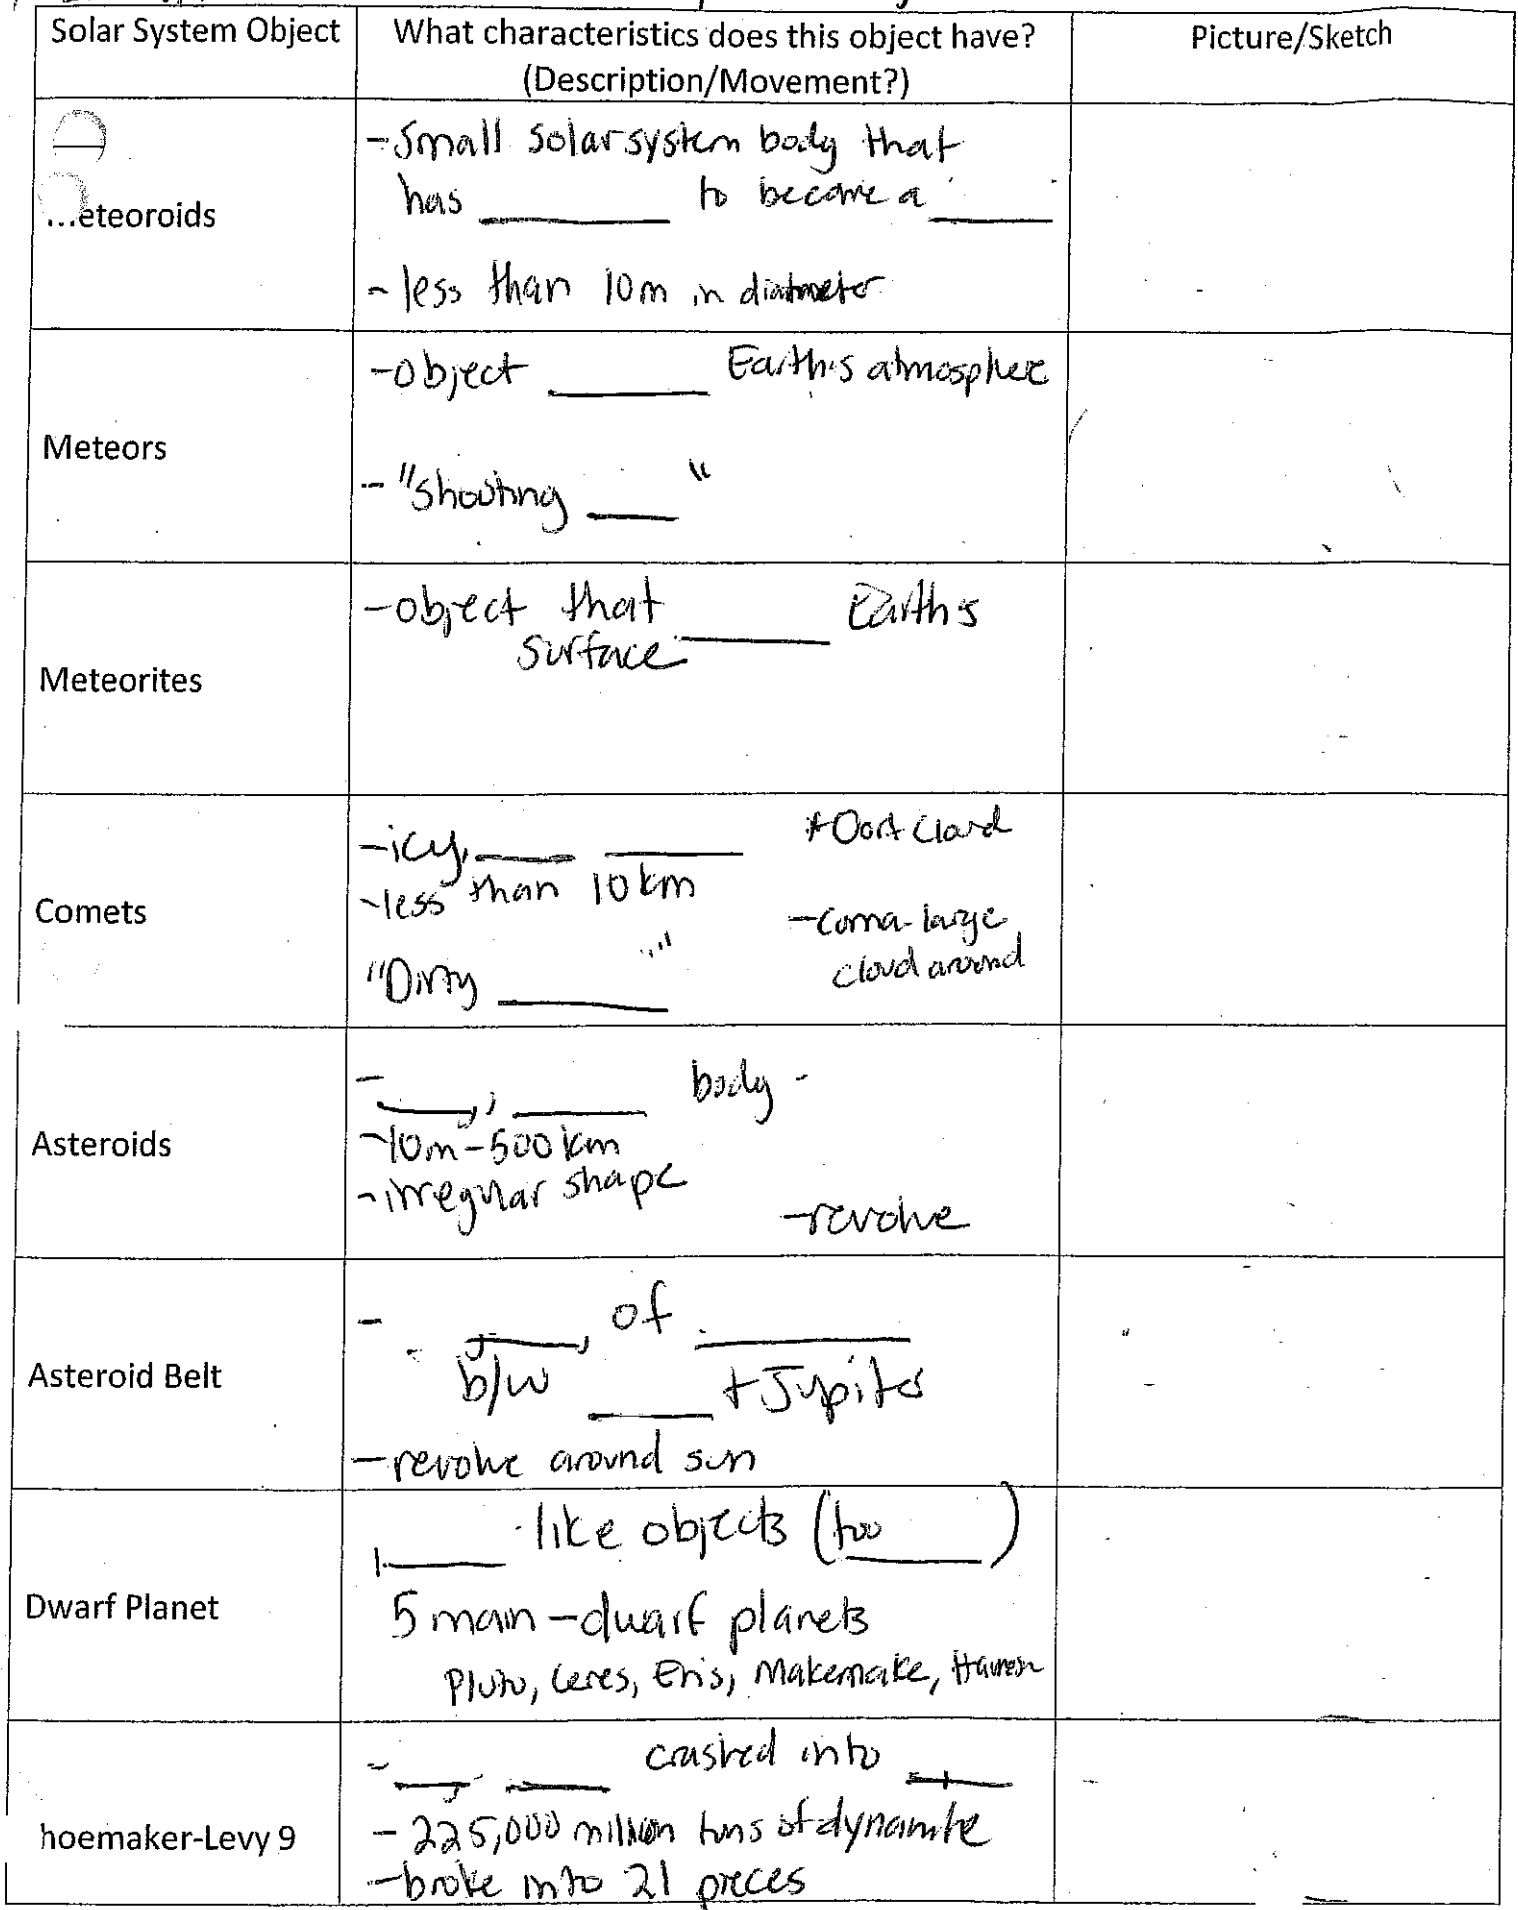 Solar System Object
What characteristics does this object have?
(Description/Movement?)
Picture/Sketch
...eteoroids
-Small solar system body that
has ______ to become a ______
- less than 10m in diatmeter
Meteors
-Object ______ Earth's atmosphere
- "Shooting ____"
Meteorites
-object that ______ Earth's
surface
Comets
-icy, ____ ____
-less than 10 km
"Dirty ______"
*Oort Cloud
-coma-large
cloud around
Asteroids
- ____, ____ body -
-10m-500km
-irregular shape
-revolve
Asteroid Belt
- ____ of ______
b/w ____ + Jupiter
-revolve around sun
Dwarf Planet
____-like objects (too ____)
5 main-dwarf planets
Pluto, Ceres, Eris, Makemake,
hoemaker-Levy 9
- ____ ____ crashed into ____
- 225,000 million tons of dynamite
-broke into 21 pieces